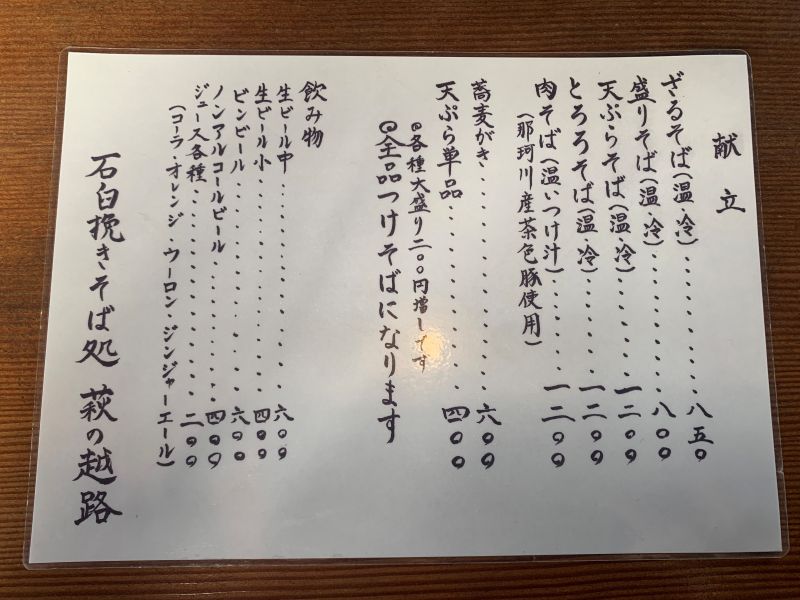 献立
ざるそば(温・冷)..........八五〇
盛りそば(温・冷)..........八〇〇
天ぷらそば(温・冷)........一二〇〇
とろろそば(温・冷)........一二〇〇
肉そば(温いつけ汁)........一二〇〇
(那珂川産茶色豚使用)
蕎麦がき..............六〇〇
天ぷら単品............四〇〇
◎各種大盛り二〇〇円増しです
◎全品つけそばになります
飲み物
生ビール中............六〇〇
生ビール小............四〇〇
ビンビール............六〇〇
ノンアルコールビール........四〇〇
ジュース各種............二〇〇
(コーラ・オレンジ・ウーロン・ジンジャーエール)
石臼挽きそば処 萩の越路